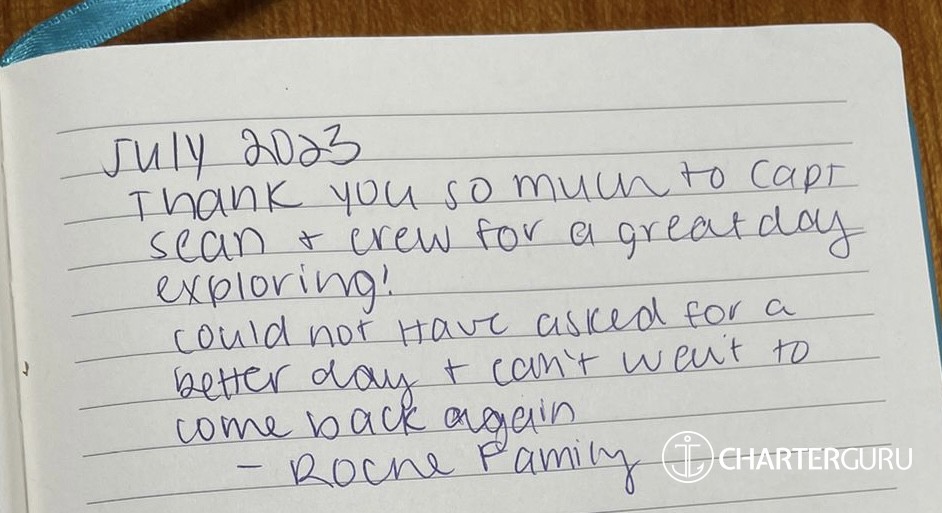 July 2023
Thank you so much to Capt
Sean + crew for a great day
exploring!
Could not have asked for a
better day + can't wait to
come back again
- Roche Family
CHARTERGURU